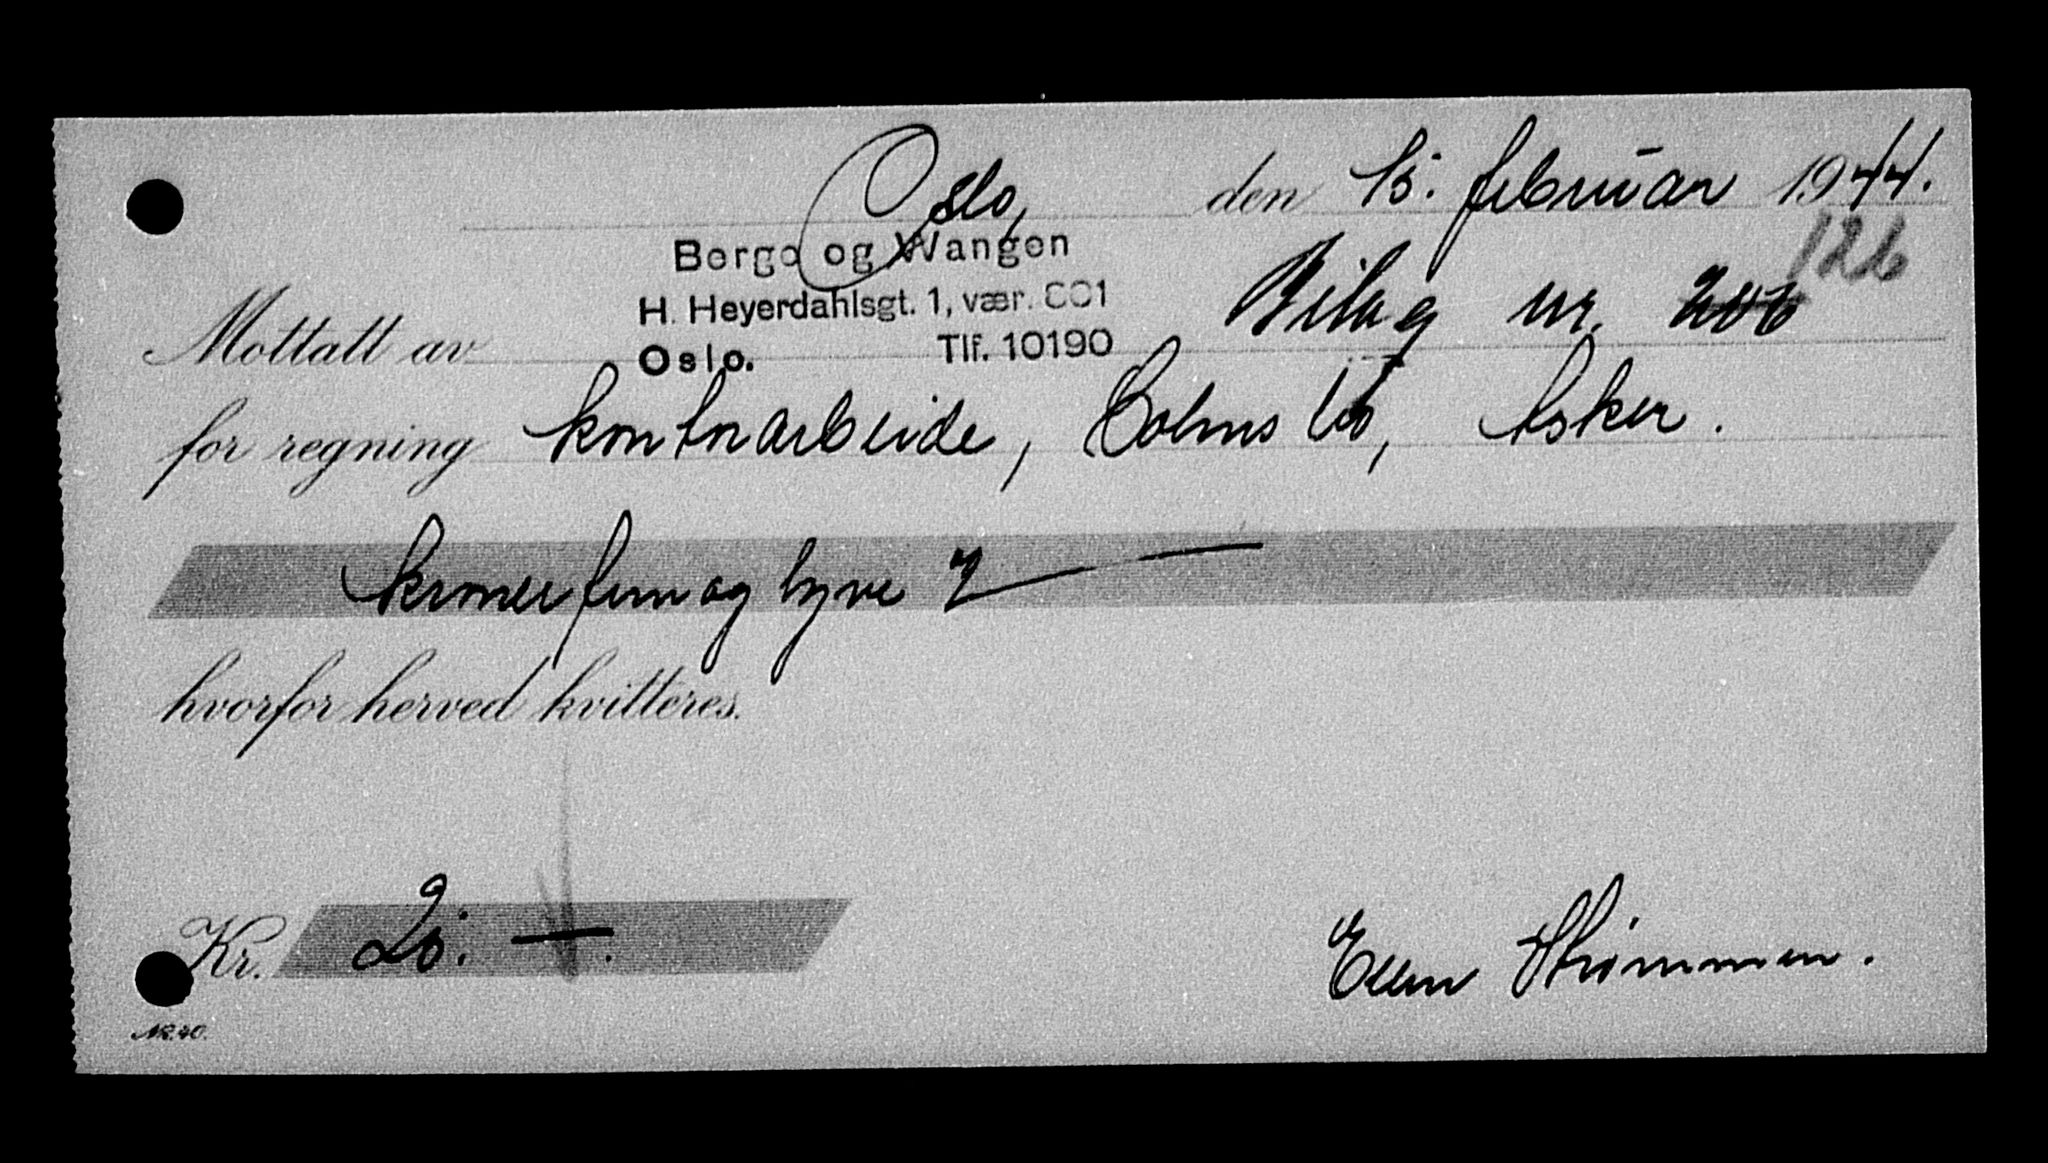 Oslo, den 15. februar 1944.
Berge og Wangen
126
H. Heyerdahlsgt. 1, vær. 601
Bilag nr. 206
Mottatt av
Oslo. Tlf. 10190
for regning kontorarbeide, Asker.
kroner fem og tyve
hvorfor herved kvitteres.
Kr. 25. —.
Ellen Strømmen.
NR. 40.